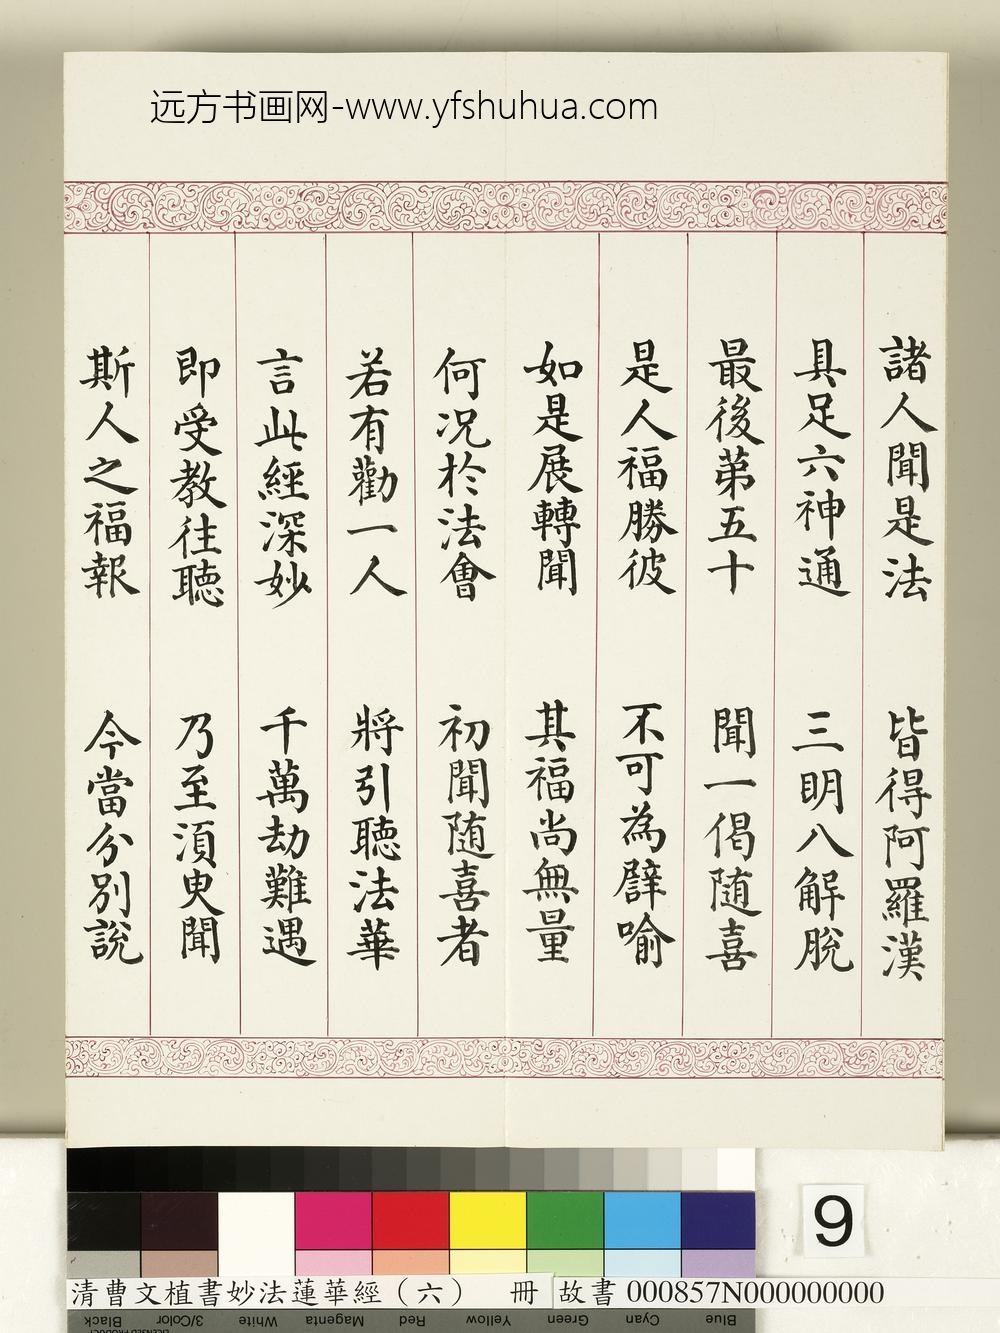 远方书画网-www.yfshuhua.com
諸人聞是法 皆得阿羅漢
具足六神通 三明八解脫
最後第五十 聞一偈随喜
是人福勝彼 不可為譬喻
如是展轉聞 其福尚無量
何況於法會 初聞随喜者
若有勸一人 將引聽法華
言此經深妙 千萬劫難遇
即受教往聽 乃至須臾聞
斯人之福報 今當分別說
9
清曹文植書妙法蓮華經（六） 冊 故書 000857N000000000
Black 3/Color White Magenta Red Yellow Green Cyan Blue
LICENSED PRODUCT